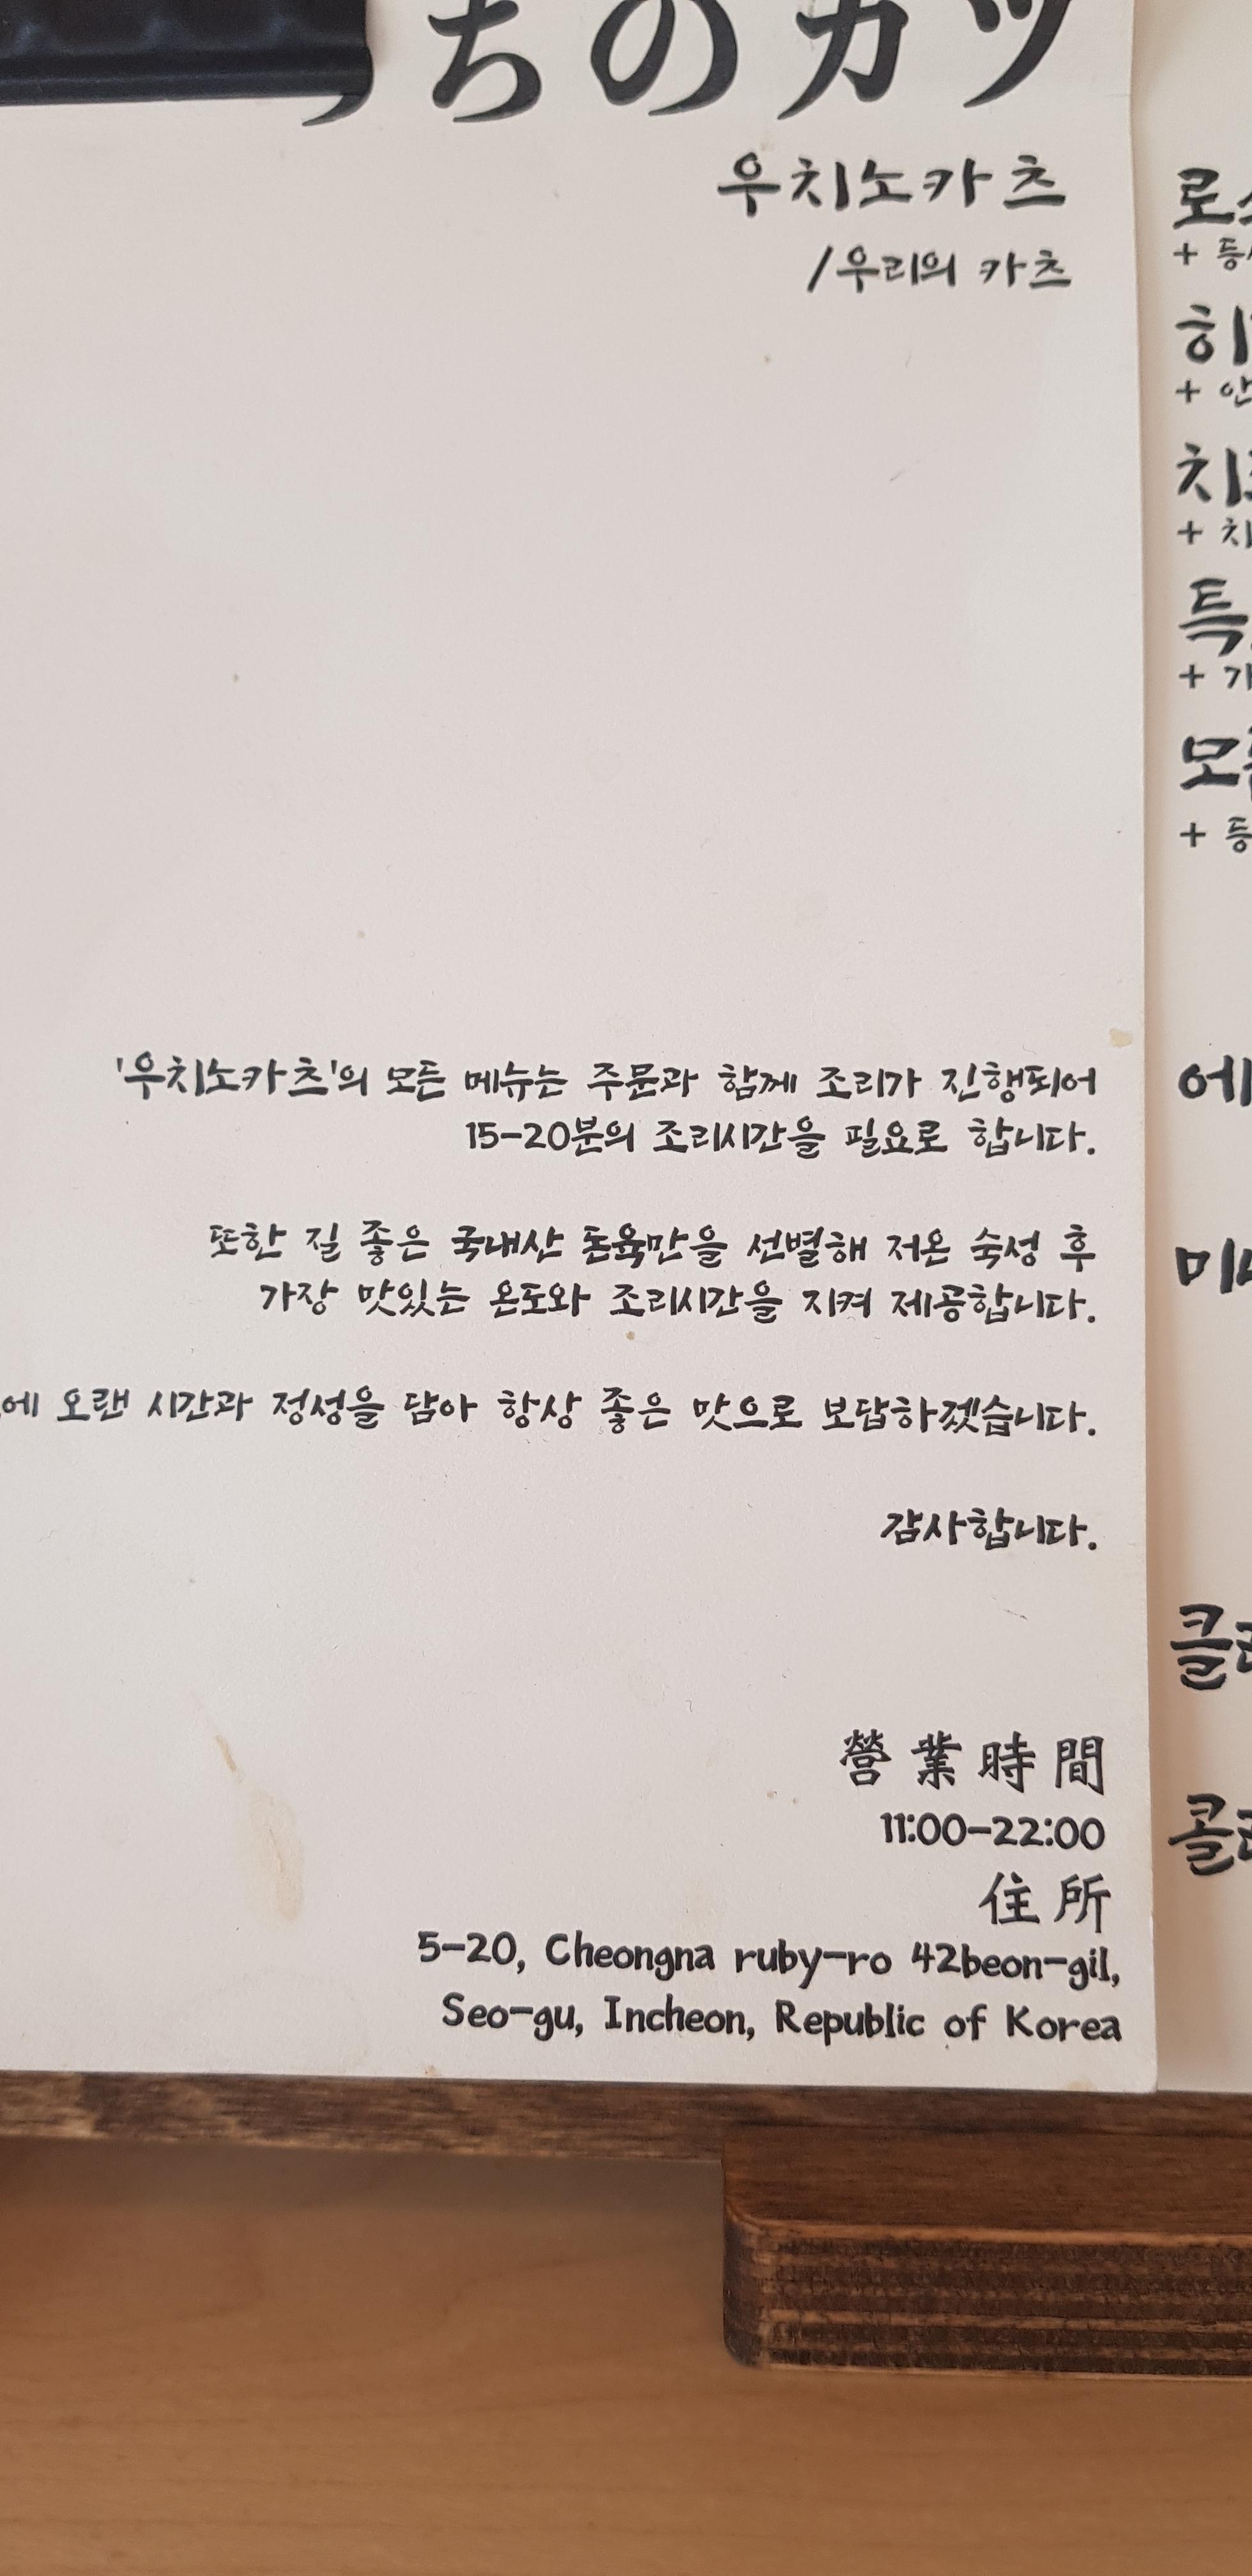 ちのカツ
우치노카츠
/우리의 카츠
'우치노카츠'의 모든 메뉴는 주문과 함께 조리가 진행되어
15-20분의 조리시간을 필요로 합니다.
또한 질 좋은 국내산 돈육만을 선별해 저온 숙성 후
가장 맛있는 온도와 조리시간을 지켜 제공합니다.
에 오랜 시간과 정성을 담아 항상 좋은 맛으로 보답하겠습니다.
감사합니다.
營業時間
11:00-22:00
住所
5-20, Cheongna ruby-ro 42beon-gil,
Seo-gu, Incheon, Republic of Korea